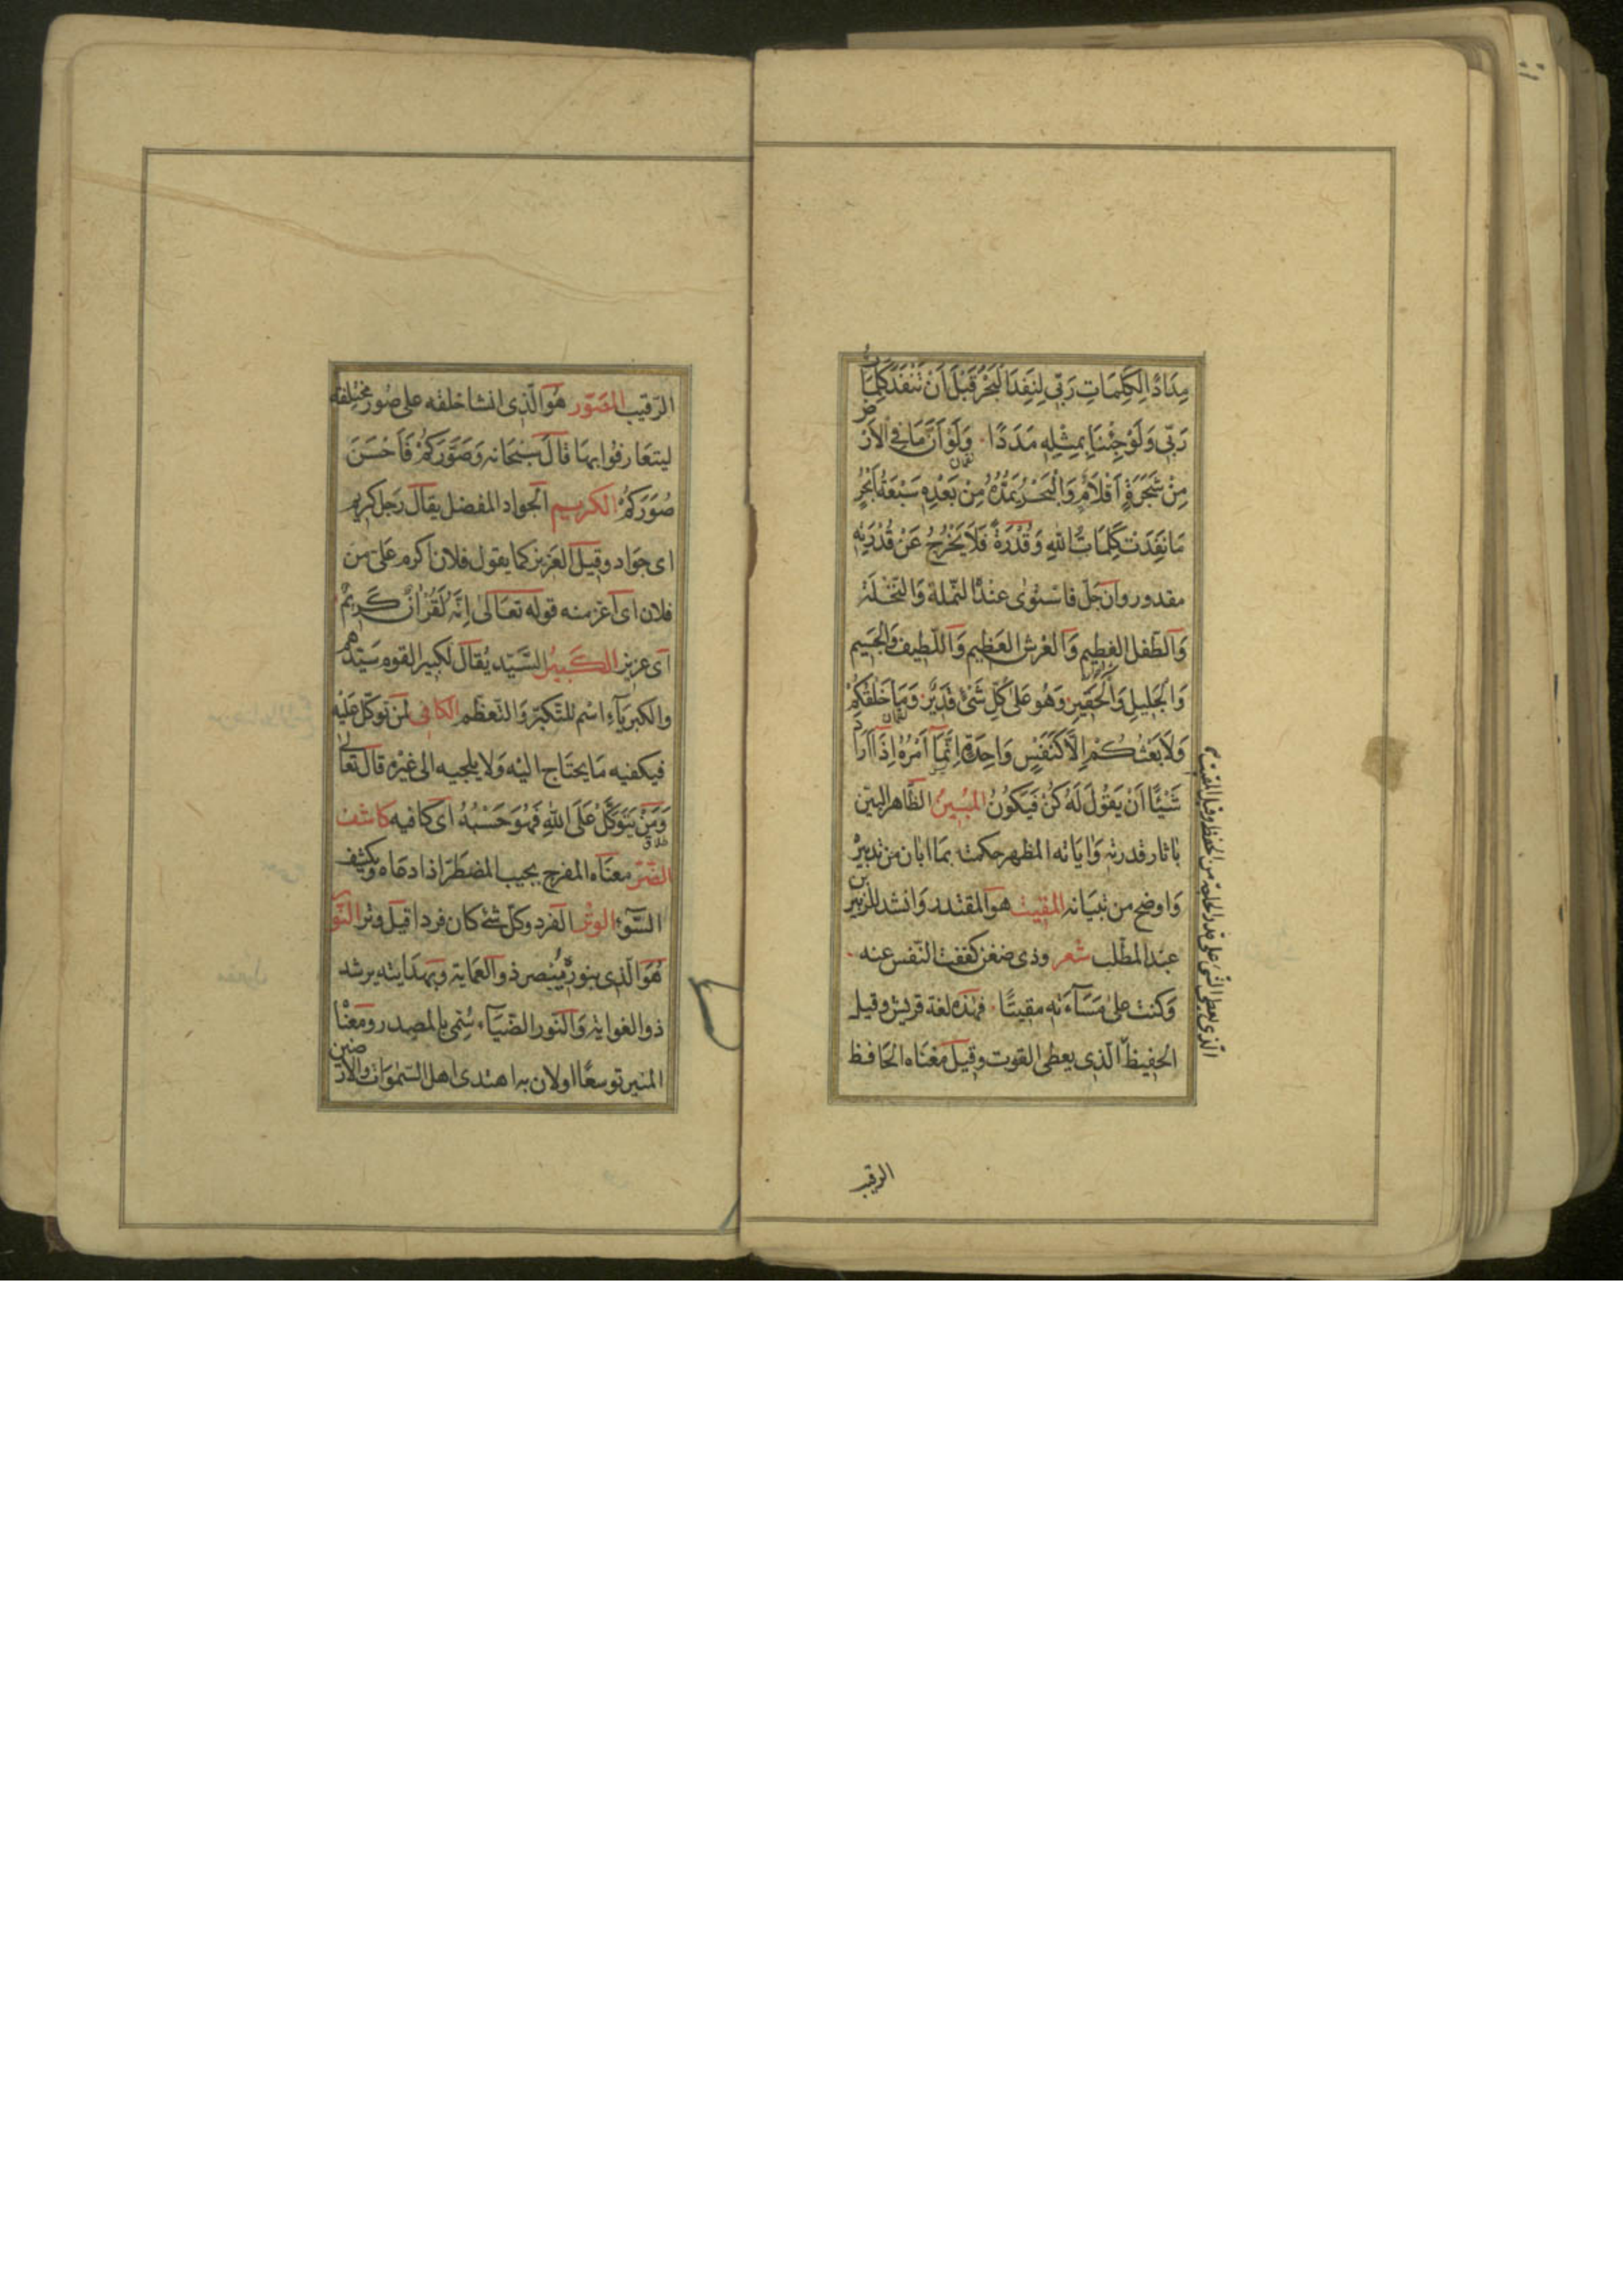 مِدَادًا لِكَلِمَاتِ رَبِّي لَنَفِدَ الْبَحْرُ قَبْلَ أَنْ تَنْفَدَ كَلِمَاتُ
رَبِّي وَلَوْ جِئْنَا بِمِثْلِهِ مَدَدًا وَلَوْ أَنَّ مَا فِي الْأَرْضِ
لقمان
مِنْ شَجَرَةٍ أَقْلَامٌ وَالْبَحْرُ يَمُدُّهُ مِنْ بَعْدِهِ سَبْعَةُ أَبْحُرٍ
مَا نَفِدَتْ كَلِمَاتُ اللهِ وَقُدْرَةً فَلَا يَخْرُجُ عَنْ قُدْرَتِهِ
مقدور وان جلّ فاستوى عنده النملة والنخلة
والطفل الفطيم والعرش العظيم واللطيف والجسيم
والجليل والحقير وهو على كلّ شئ قدير وما خلقكم
لقمان
ولا بعثكم الّا كنفس واحدة انّما امره اذا اراد
شيئًا ان يقول له كن فيكون المبين الظاهر البيّن
باثار قدرته واياته المظهر حكمته بما ابان من تدبيره
واوضح من تبيانه المقيت هو المقتدر وانشد للزبير بن
عبد المطّلب شعر وذى ضغن كففت النّفس عنه
وكنت على مسآءته مقيتًا فهذه لغة قريش وقيل
الحفيظ الّذى يعطى القوت وقيل معناه الحافظ
الّذى يعطى الشئ على قدر الحاجة من الحفظ وقيل المقيت
الرقيب
الرّقيب المصوّر هو الّذى انشا خلقه على صور مختلفة
ليتعارفوا بها قال سبحانه وصوّركم فاحسن
صوركم الكريم الجواد المفضل يقال رجل كريم
اى جواد وقيل العزيز كما يقول فلان اكرم علىّ من
فلان اى اعز منه قوله تعالى انّه لقران كريم
اى عزيز الكبير السّيّد يقال لكبير القوم سيّدهم
والكبريآء اسم للتكبّر والتعظّم الكافى لمن توكّل عليه
فيكفيه ما يحتاج اليه ولا يلجيه الى غيره قال تعالى
ومن يتوكّل على الله فهو حسبه اى كافيه كاشف
طلاق
الضّر معناه المفرج يجيب المضطرّ اذا دعاه ويكشف
السّوء الوتر الفرد وكلّ شئ كان فردا قيل وتر النّور
هو الّذى بنوره يبصر ذو العماية وبهدايته يرشد
ذو الغواية والنور الضّيآء سُمّى بالمصدر ومعناه
المنير توسعًا او لان به اهتدى اهل السّموات والارضين